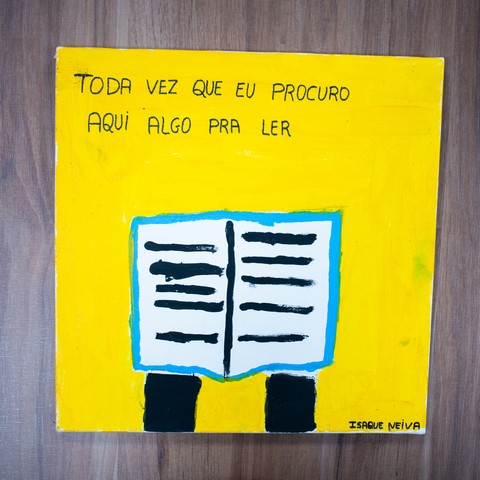 TODA VEZ QUE EU PROCURO
AQUI ALGO PRA LER
ISAQUE NEIVA